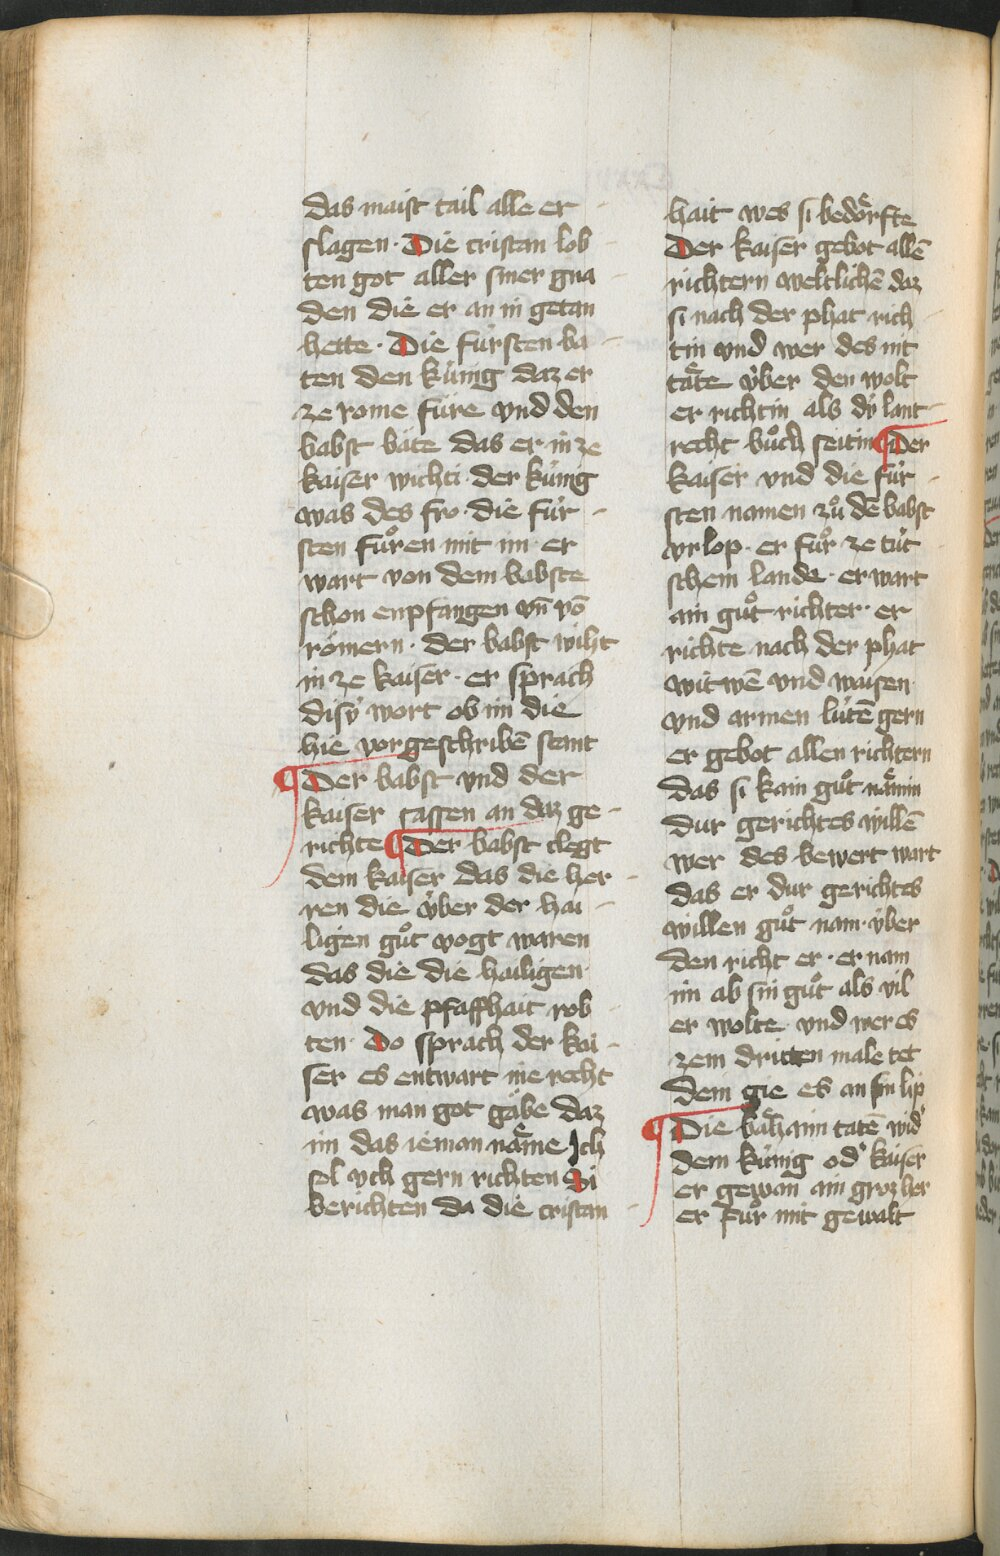 das maist tail alle er
slagen · Die cristan lob
ten got aller siner gna
den die er an in getan
hette · Die fürsten ba
ten den künig daz er
ze rome füre vnd den
babst bäte das er in ze
kaiser wichti · der künig
was des fro · die für
sten fuͦren mit im · er
wart von dem babste
schon enpfangen vn̄ vō
römern · der babst wiht
in ze kaiser · er sprach
disÿ wort ob im die
hie vorgeschribē stant
¶ Der babst vnd der
kaiser sassen an daz ge
richte ¶ Der babst clegt
dem kaiser das die her
ren die v̈ber der hai
ligen guͦt vogt waren
das die die hailigen
vnd die pfaffhait rob
ten · Do sprach der kai
ser es entwart nie recht
was man got gäbe daz
im das ieman näme Ich
sol vch gern richten Di
berichten da die cristan
hait wes si bedörfte
Der kaiser gebot allē
richtern weltlichē daz
si nach der phat rich
tin vnd wer des nit
täte v̈ber den wolt
er richtin als dÿ lant
recht buͦch seitin ¶ Der
kaiser vnd die für
sten namen zuͦ dē babst
vrlop · er fuͦr ze tüt
schem lande · er wart
ain guͦt richter · er
richte nach der phat
witwē vnd waisen
vnd armen lütē gern
er gebot allen richtern
das si kain guͦt nämin
dur gerichtes willē
wer des bewert wart
das er dur gerichtes
willen guͦt nam · v̈ber
den richt er · er nam
im ab sin guͦt als vil
er wolte vnd wer es
zem dritten male tet
dem gie es an sin lip
¶ Die bähaim tatē wid'
dem künig od' kaiser
er gewan ain groz her
er fuͦr mit gewalt